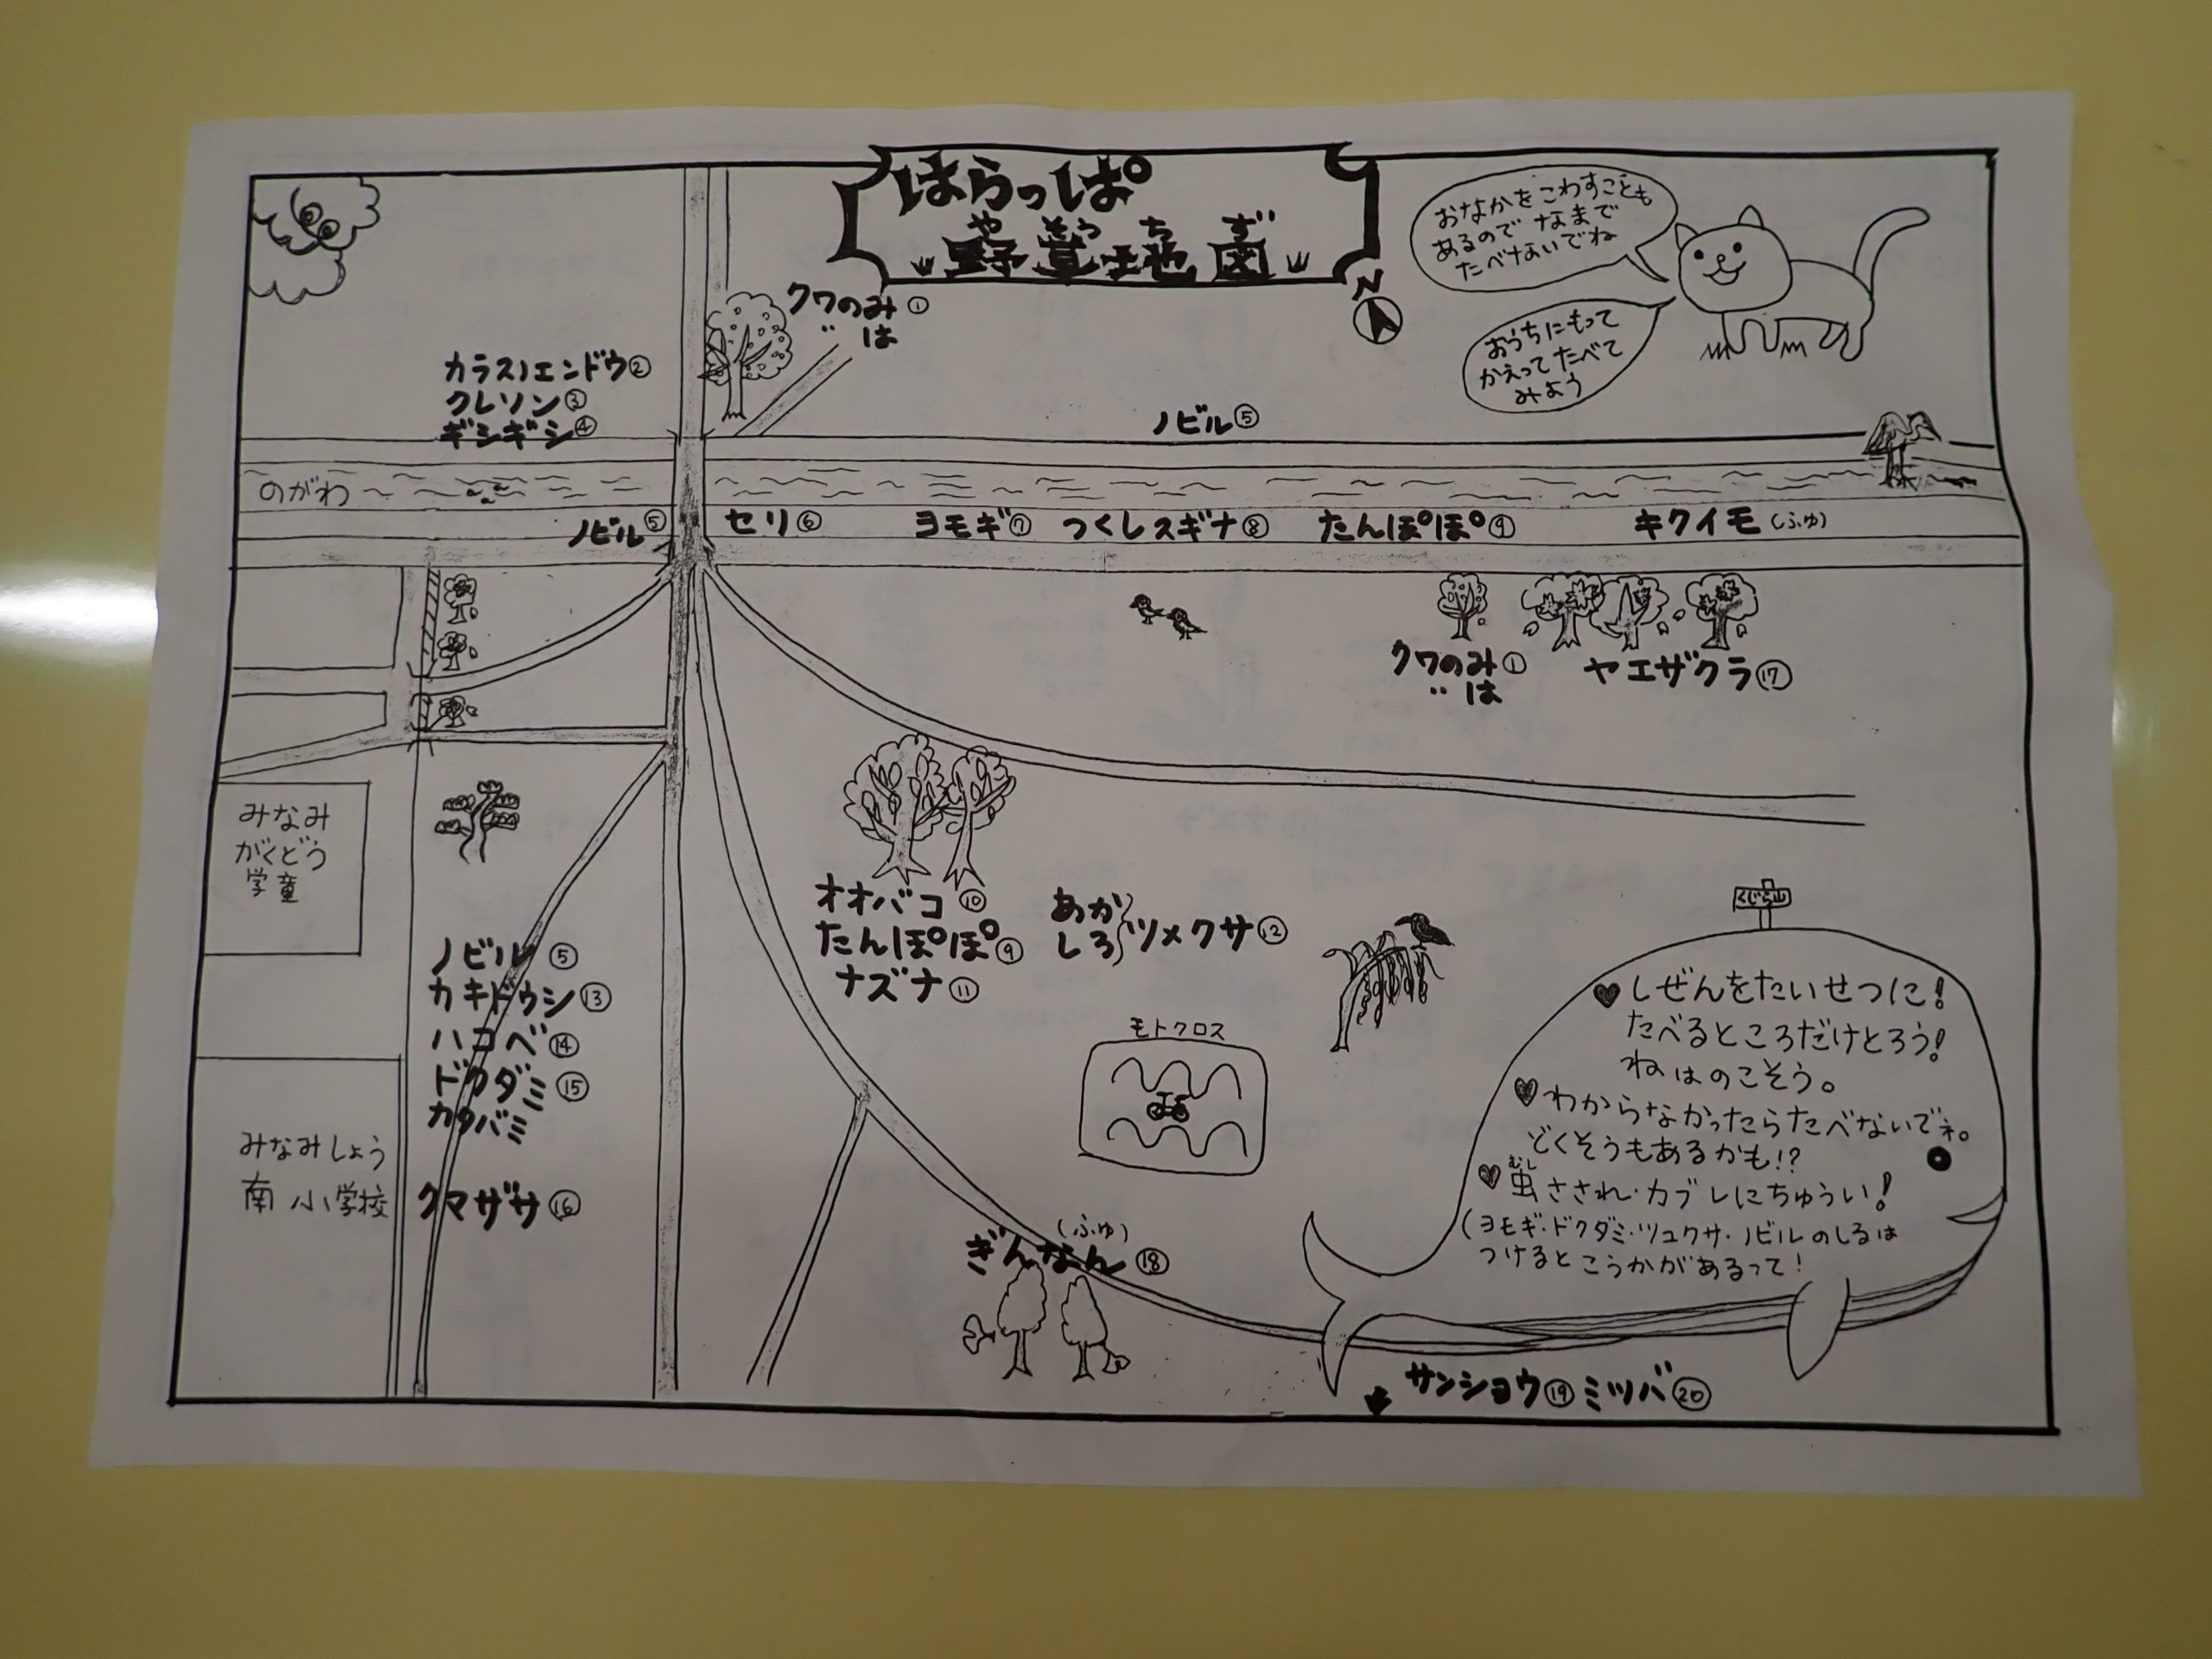 はらっぱ
やそうちず
野草地図
N
おなかをこわすことも
あるので なまで
たべないでね
おうちにもって
かえってたべて
みよう
クワのみ①
〃 は
カラスノエンドウ②
クレソン③
ギシギシ④
ノビル⑤
のがわ
ノビル⑤
セリ⑥
ヨモギ⑦
つくしスギナ⑧
たんぽぽ⑨
キクイモ(ふゆ)
クワのみ①
〃 は
ヤエザクラ⑰
みなみ
がくどう
学童
オオバコ⑩
たんぽぽ⑨
ナズナ⑪
あか
しろ
ツメクサ⑫
ノビル⑤
カキドウシ⑬
ハコベ⑭
ドクダミ⑮
カタバミ
クマザサ⑯
みなみしょう
南小学校
モトクロス
くじら山
♥しぜんをたいせつに!
たべるところだけとろう!
ねはのこそう。
♥わからなかったらたべないでネ。
どくそうもあるかも!?
むし
♥虫さされ・カブレにちゅうい!
(ヨモギ・ドクダミ・ツユクサ・ノビルのしるは
つけるとこうかがあるって!
(ふゆ)
ぎんなん⑱
サンショウ⑲ミツバ⑳